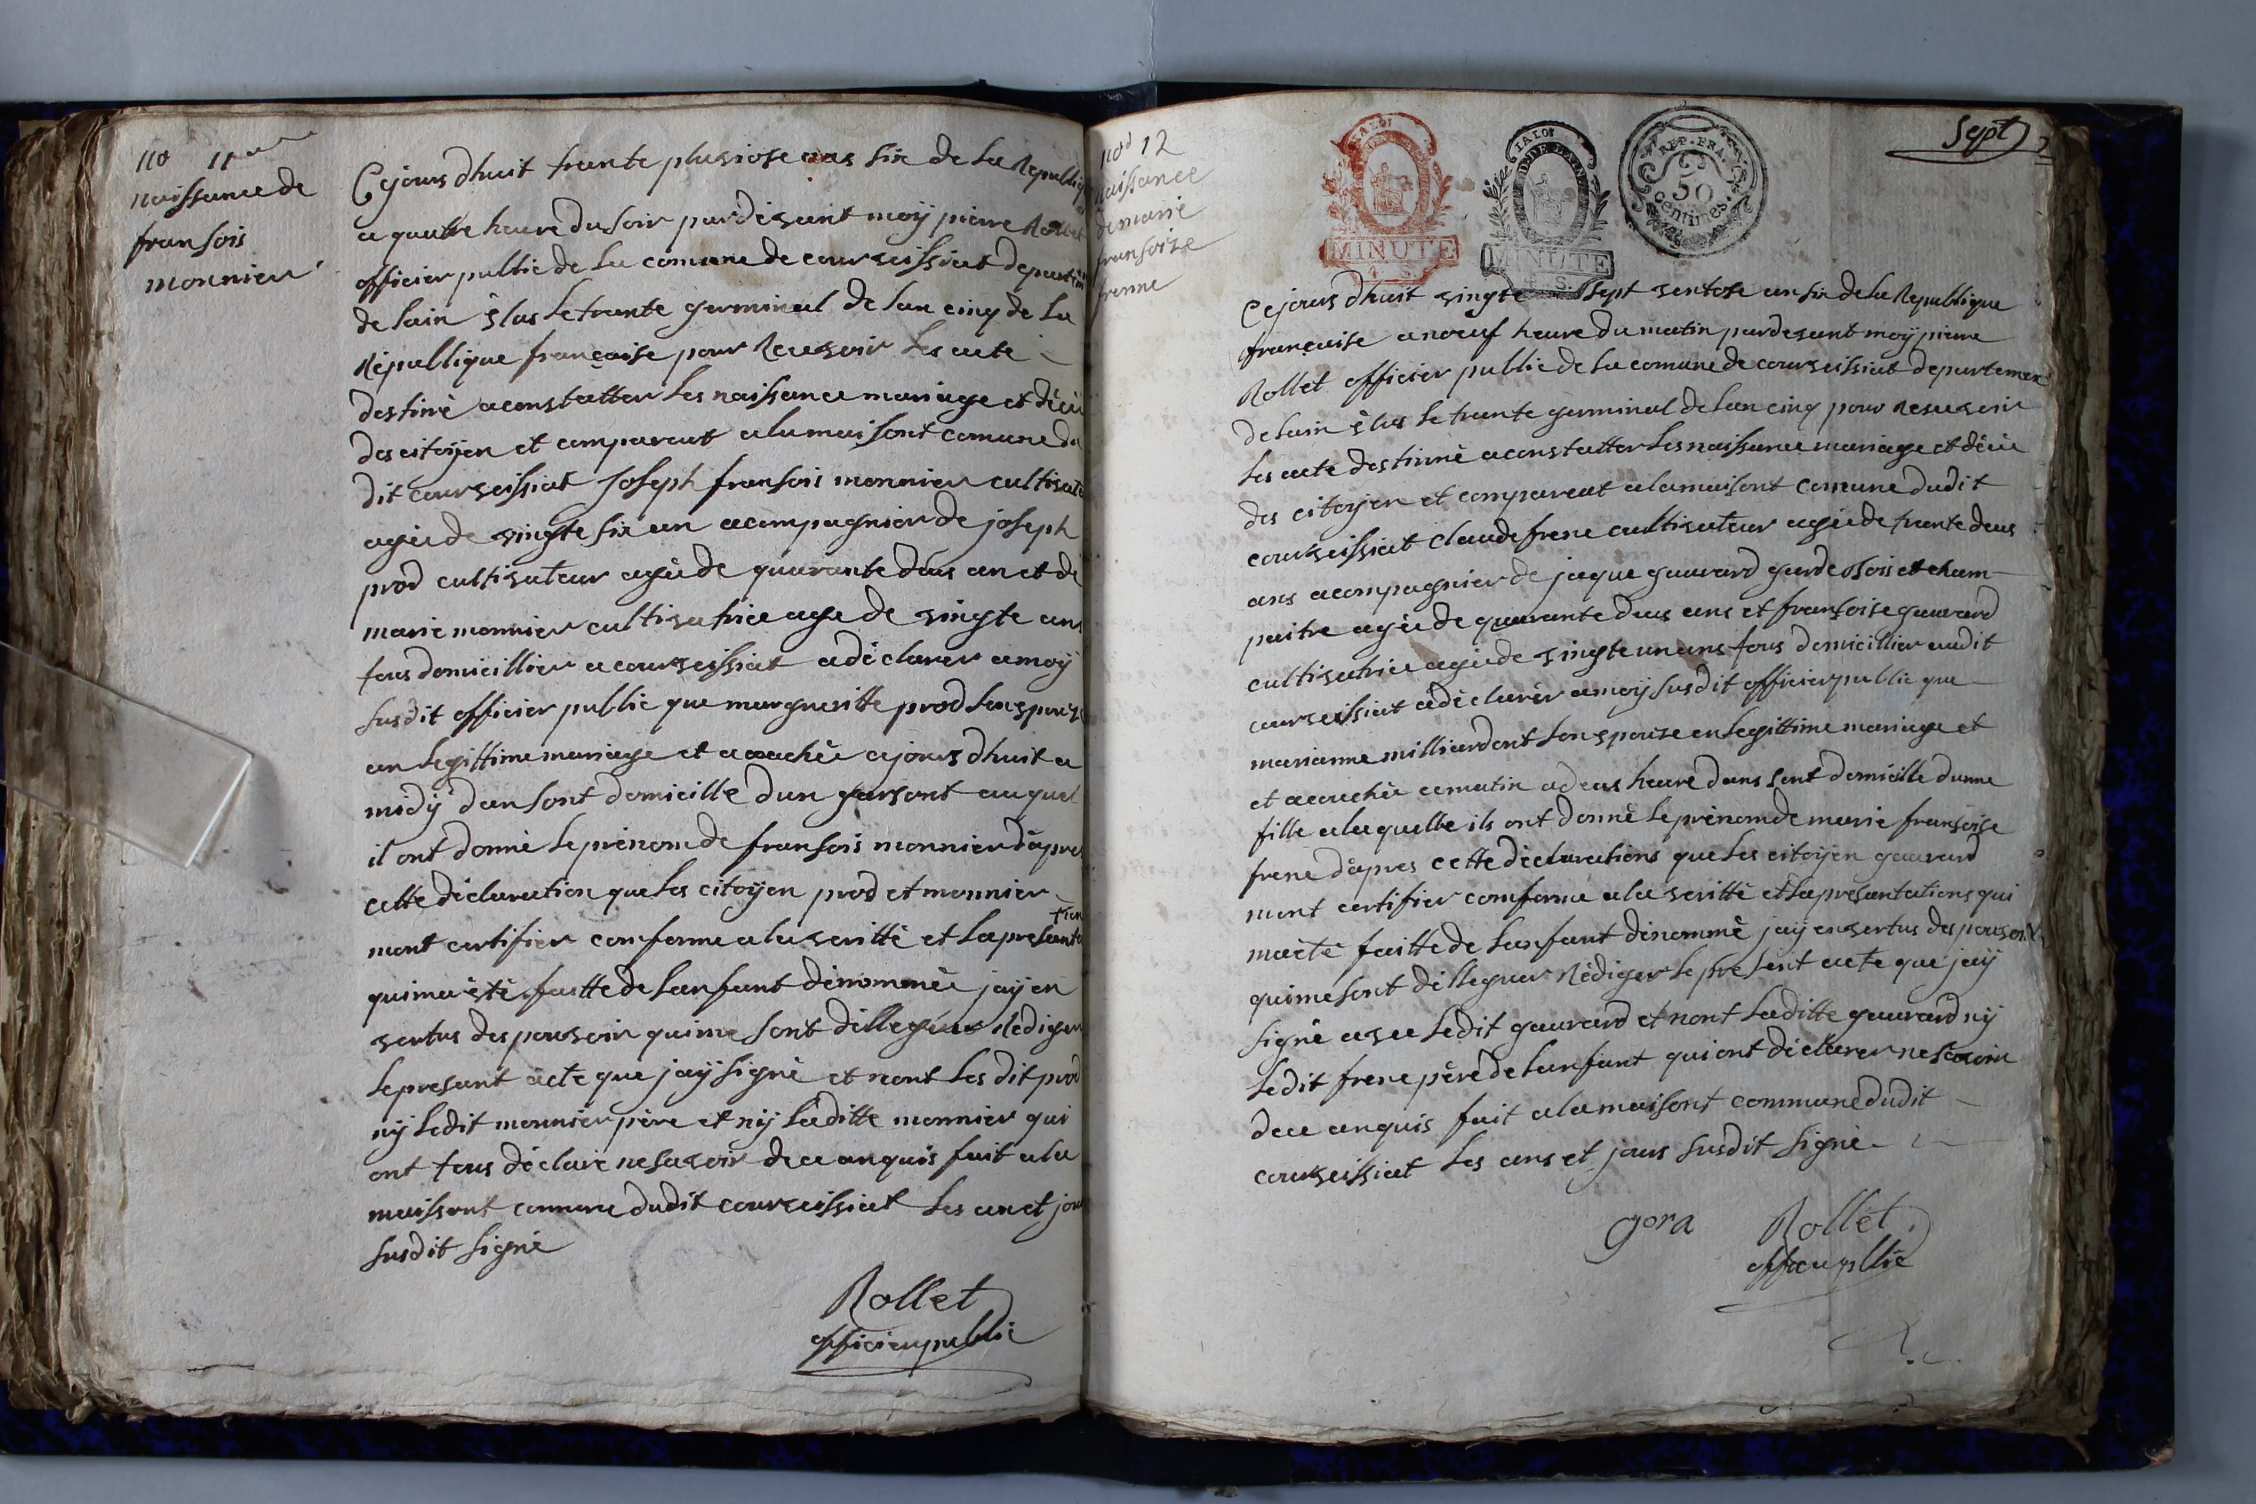 no 11
naissance de
fransois
monnier
Cejours dhuit trante plusiose ans six de la Republiq
a quatre heure du soir pardesant moÿ pierre Rollet
officier public de la comune de courseissiat departem
de lain êlus le trante germinal de lan cinq de la
République française pour Recesoir les acte
destinè a constatter les naissance mariage et dècè
des citoÿen et comparent a la maisont comune du
dit courseissiat Joseph fransois monnier cultisate
agèe de singte six an acompagnier de joseph
prod cultisateur agèe de quarante deus an et de
marie monnier cultisatrice age de singte ans
tous domicillier a courseissiat a dèclarer a moÿ
susdit officier public que margueritte prod son spouse
an legittime mariage et acouchèe cejours dhuit a
midÿ dan sont domicille dun garsont auquel
il ont donnè le prènom de fransois monnier dâpres
cette dèclaration que les citoÿen prod et monnier
mont certifier conforme a la seritté et la presanta
tion
qui ma ètè faitte de lanfant dènommèe jaÿ en
sertus des pousoir qui me sont dèlleguer Rediger
le presant acte que jaÿ signè et nont les dit prod
nÿ ledit monnier père et nÿ laditte monnier qui
ont tous dèclaré ne sasoir de ce anquis fait a la
maisont comune dudit courseissiat les an et jour
susdit signè
Rollet
officier public
Sept
LA LOI
MINUTE
LA LOI
MINUTE
REP. FRA.
50
centimes.
nod 12
naissance
de marie
fransoise
frenne
Cejours dhuit singte sept sentose an six de la Republique
française a noeuf heure du matin pardesant moÿ pierre
Rollet officier public de la comune de courseissiat departemen
de lain êlus le trante germinal de lan cinq pour Resesoir
les acte destinnè a constatter les naissance mariage et dècèe
des citoÿen et compareat a la maisont comune dudit
courseissiat claude frene cultisateur agèe de trante deus
ans acompagnier de jaque gauvard garde bois et cham
paitre agèe de quarante deus ans et fransoise gauvard
cultisatrice agèe de singte un ans tous domicillier audit
courseissiat a dèclarèr a moÿ susdit officier public que
marianne milliardont son spouse en legittime mariage et
et acouchèe ce matin a deus heure dans sont domicille dunne
fille a laquelle ils ont donnè le prènom de marie fransoise
frene dâpres cette dèclarations que les citoÿen gauvard
mont certifier comforme a la seritté et la presantations qui
ma ètè faitte de lanfant dènommè jaÿ en sertus des pousoir
qui me sont dèlleguer Rèdiger le presant acte que jaÿ
signè asec ledit gauvard et nont laditte gauvard nÿ
ledit frene père de lanfant qui ont dèclarer ne sasoir
de ce anquis fait a la maisont commune dudit
courseissiat les ans et jours susdit signè
gora Rollet